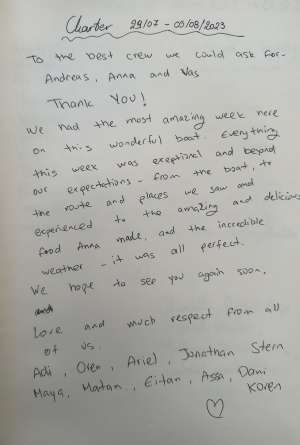 Charter 29/07 - 05/08/2023
To the best crew we could ask for-
Andreas, Anna and Vas
Thank you!
We had the most amazing week here
on this wonderful boat. Everything
this week was exeptional and beyond
our expectations - from the boat, to
the route and places we saw and
experienced to the amazing and delicious
food Anna made, and the incredible
weather - it was all perfect.
We hope to see you again soon.
Love and much respect from all
of us.
Adi, Oren, Ariel, Jonathan Stern
Maya, Matan, Eitan, Assa, Dani
Koren